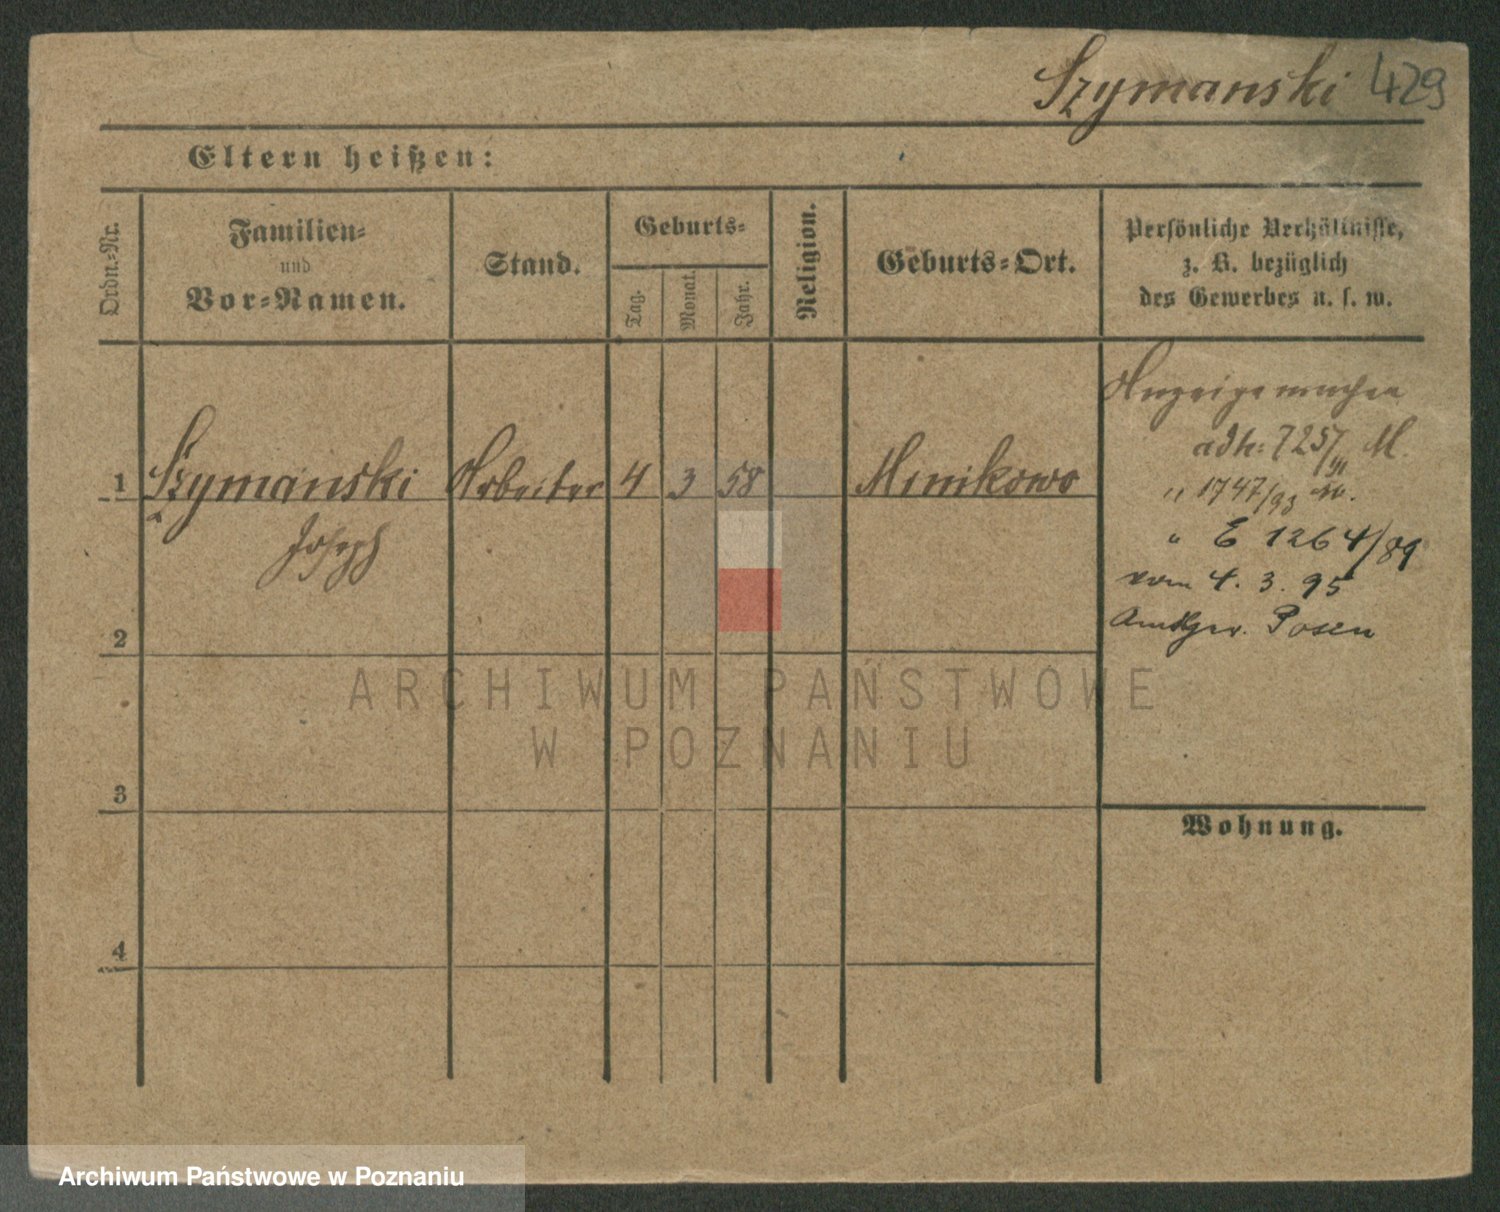 Szymanski 429
Eltern heißen:
Ordn.-Nr.
Familien-
und
Vor-Namen.
Stand.
Geburts-
Tag.
Monat.
Jahr.
Religion.
Geburts-Ort.
Persönliche Verhältnisse,
z. B. bezüglich
des Gewerbes u. s. w.
1 Szymanski Arbeiter 4 3 58 Minikowo
Joseph
Anzeige machen
adh: 7257/91 M.
" 1747/93
" E 1264/89
vom 4. 3. 95
Amtsger. Posen
2
3
4
Wohnung.
ARCHIWUM PAŃSTWOWE
W POZNANIU
Archiwum Państwowe w Poznaniu